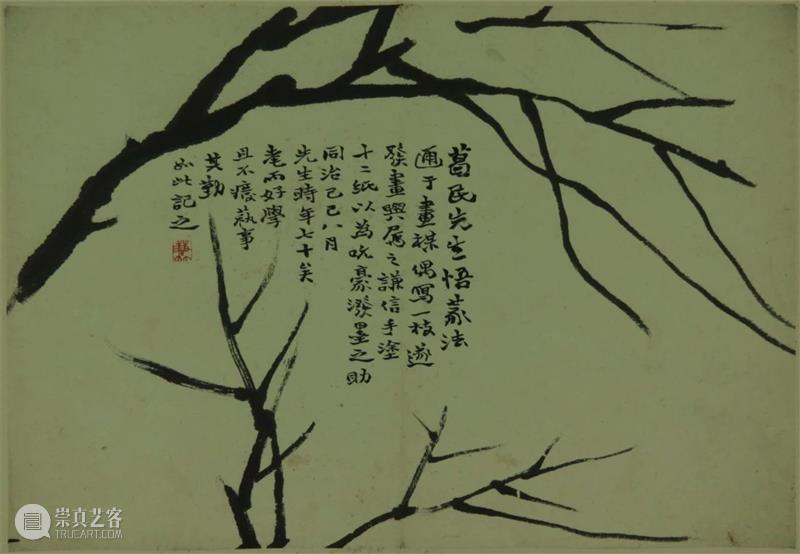 葛民先生悟篆法
通于畫禖偶寫一枝遂
發畫興屬之謙信手塗
十二紙以為吮豪潑墨之助
同治己巳八月
先生時年七十矣
耄而好學
且不癈蓺事
其勤
如此記之
崇真艺客
TRUEART.COM